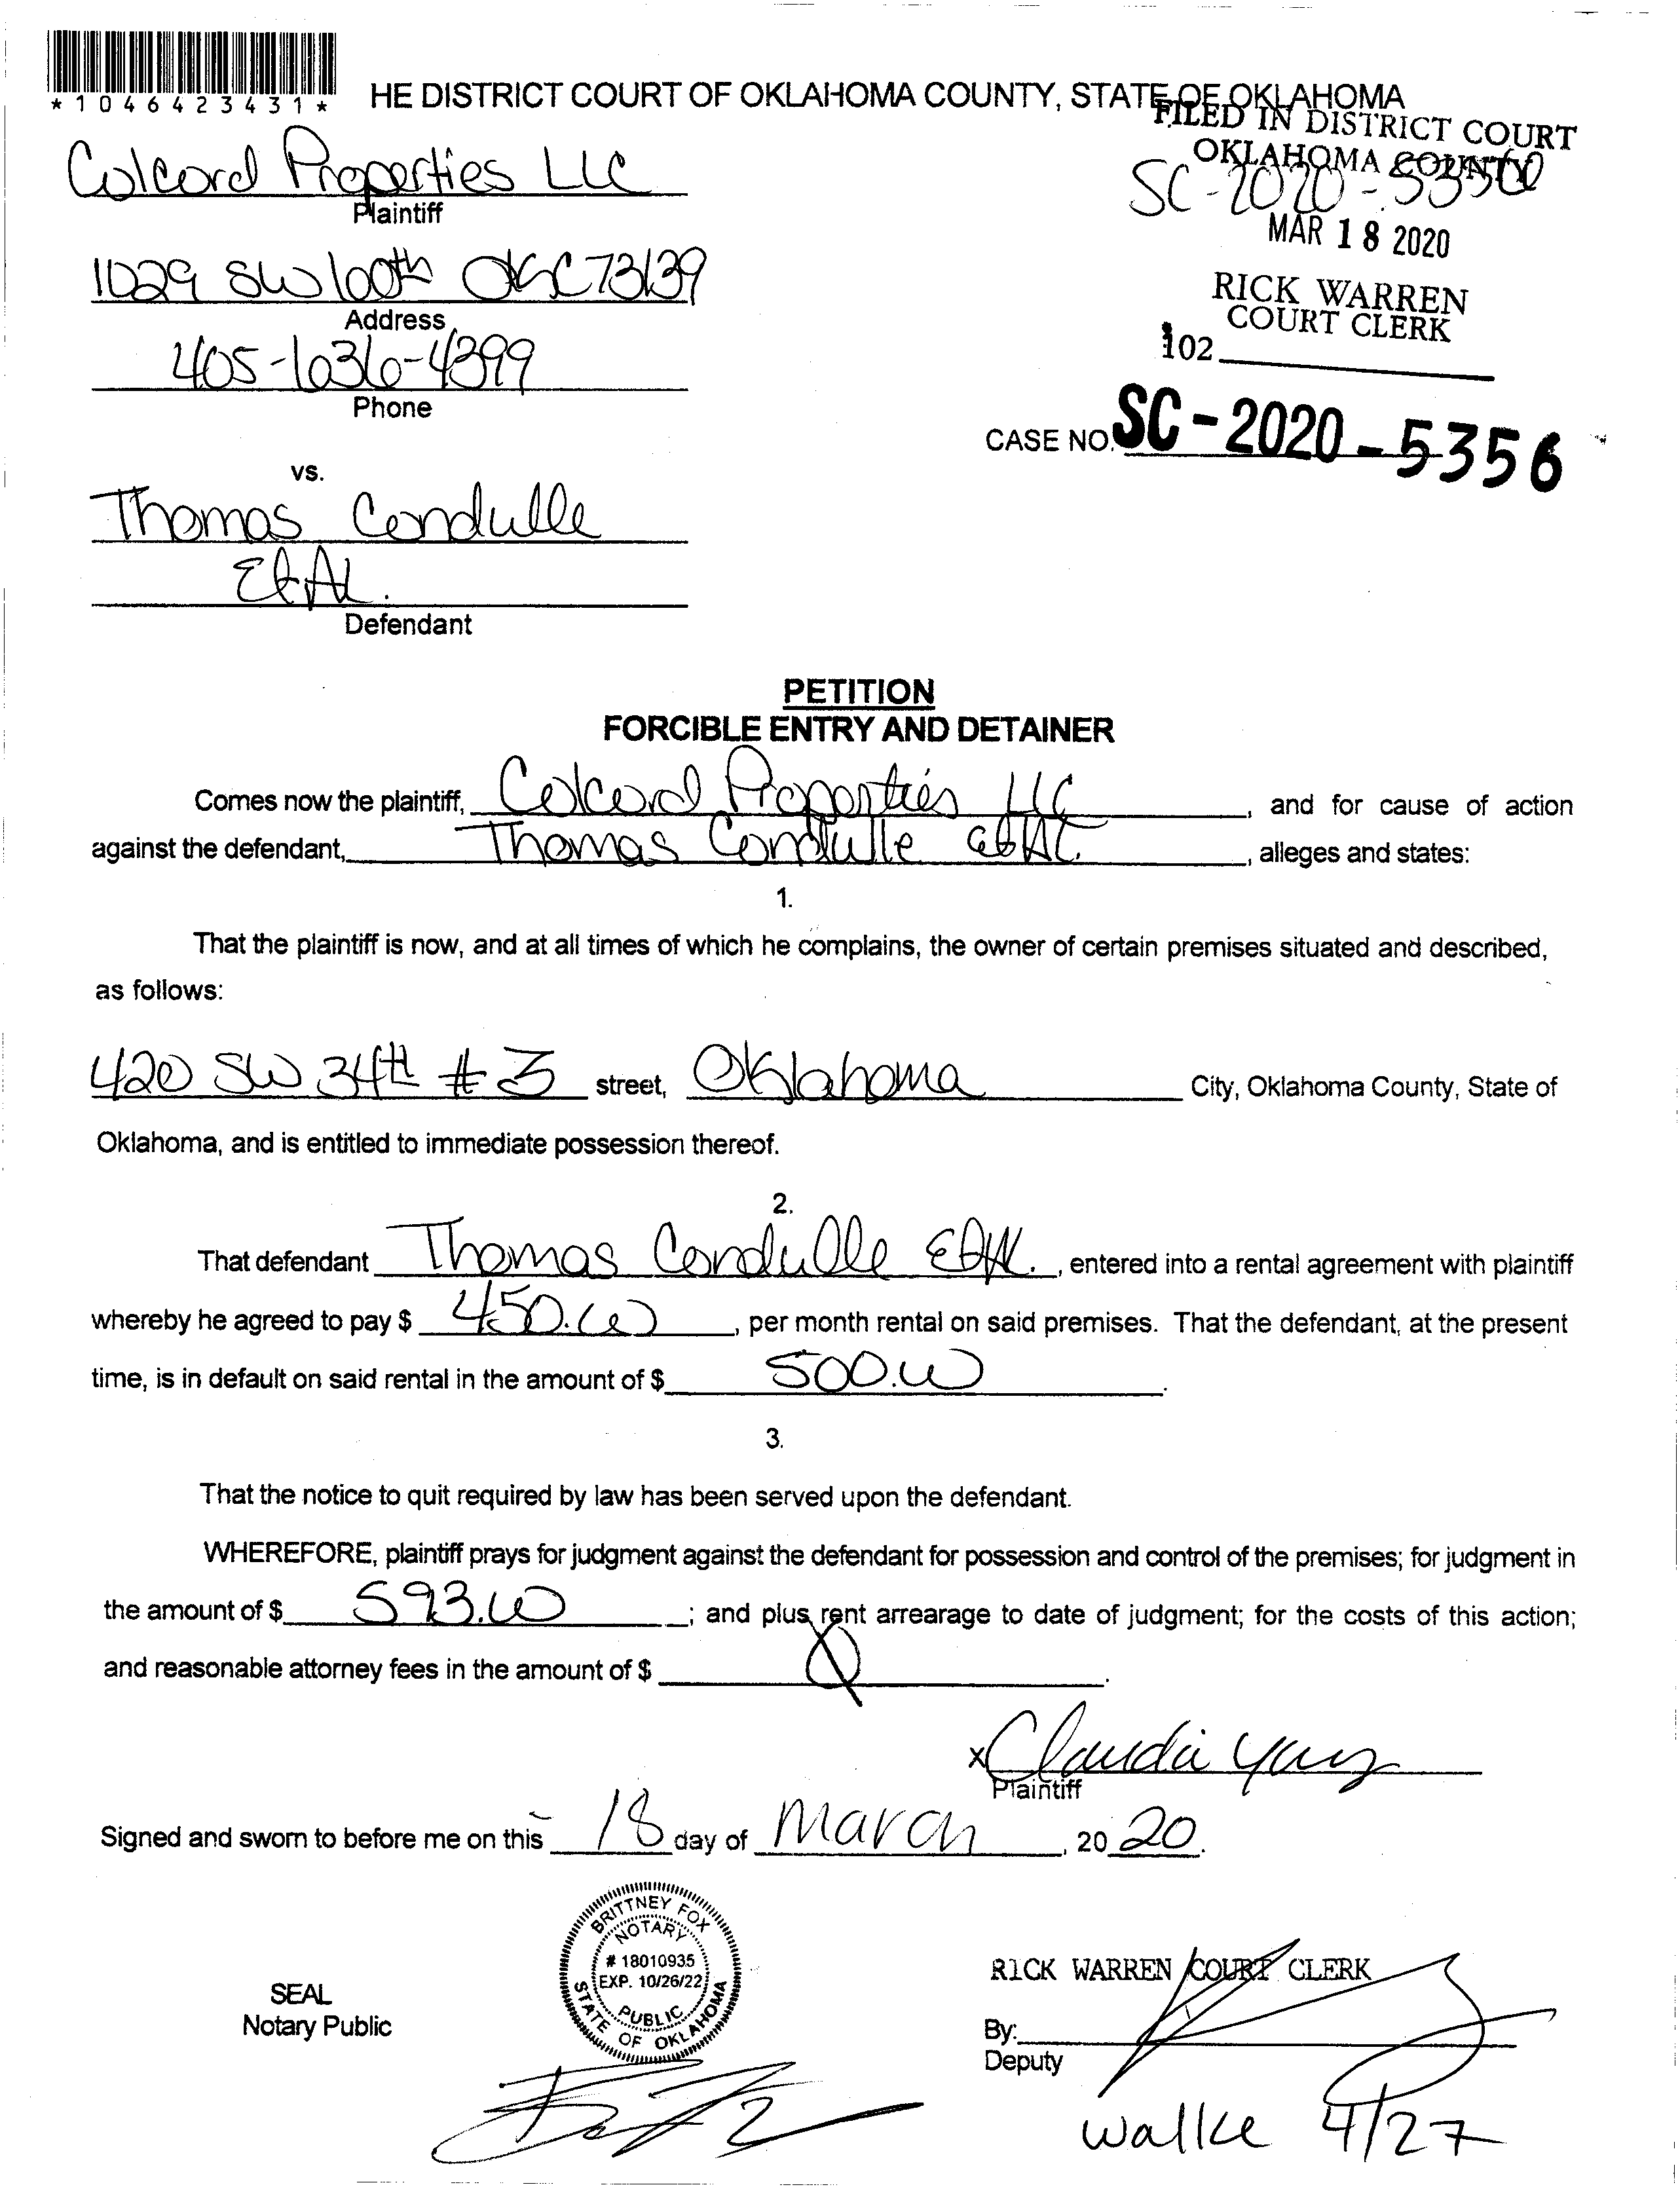 *1046423431*
HE DISTRICT COURT OF OKLAHOMA COUNTY, STATE OF OKLAHOMA
FILED IN DISTRICT COURT
OKLAHOMA COUNTY
Colcord Properties LLC
SC-2020-5356
Plaintiff
MAR 18 2020
1029 SW 100th OKC 73139
RICK WARREN
COURT CLERK
Address
102
405-636-4399
Phone
CASE NO. SC-2020-5356
vs.
Thomas Condulle
Et Al.
Defendant
PETITION
FORCIBLE ENTRY AND DETAINER
Comes now the plaintiff, Colcord Properties LLC, and for cause of action
against the defendant, Thomas Condulle et Al., alleges and states:
1.
That the plaintiff is now, and at all times of which he complains, the owner of certain premises situated and described,
as follows:
420 SW 34th #3 street, Oklahoma City, Oklahoma County, State of
Oklahoma, and is entitled to immediate possession thereof.
2.
That defendant Thomas Condulle Et Al., entered into a rental agreement with plaintiff
whereby he agreed to pay $ 450.00, per month rental on said premises. That the defendant, at the present
time, is in default on said rental in the amount of $ 500.00.
3.
That the notice to quit required by law has been served upon the defendant.
WHEREFORE, plaintiff prays for judgment against the defendant for possession and control of the premises; for judgment in
the amount of $ 593.00; and plus rent arrearage to date of judgment; for the costs of this action;
and reasonable attorney fees in the amount of $ 0.
x Claudia
Plaintiff
Signed and sworn to before me on this 18 day of March, 2020.
BRITTNEY FOX
NOTARY
# 18010935
EXP. 10/26/22
PUBLIC
STATE OF OKLAHOMA
SEAL
Notary Public
RICK WARREN COURT CLERK
By:
Deputy
Walke 4/27